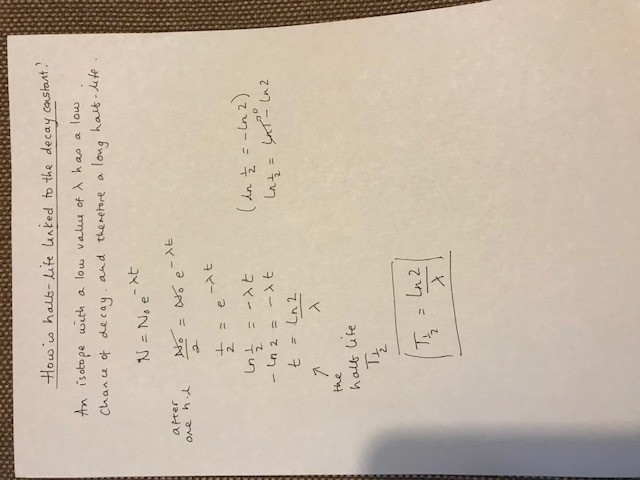 How is half-life linked to the decay constant?
An isotope with a low value of λ has a low
chance of decay. and therefore a long half-life.
N = N₀ e^-λt
after one h.l N₀/2 = N₀ e^-λt
1/2 = e^-λt
Ln 1/2 = -λt (Ln 1/2 = -Ln 2)
-Ln 2 = -λt Ln 1/2 = Ln 1 ⁰ - Ln 2
t = Ln 2/λ
↑
the
half life
T½
T½ = Ln 2/λ